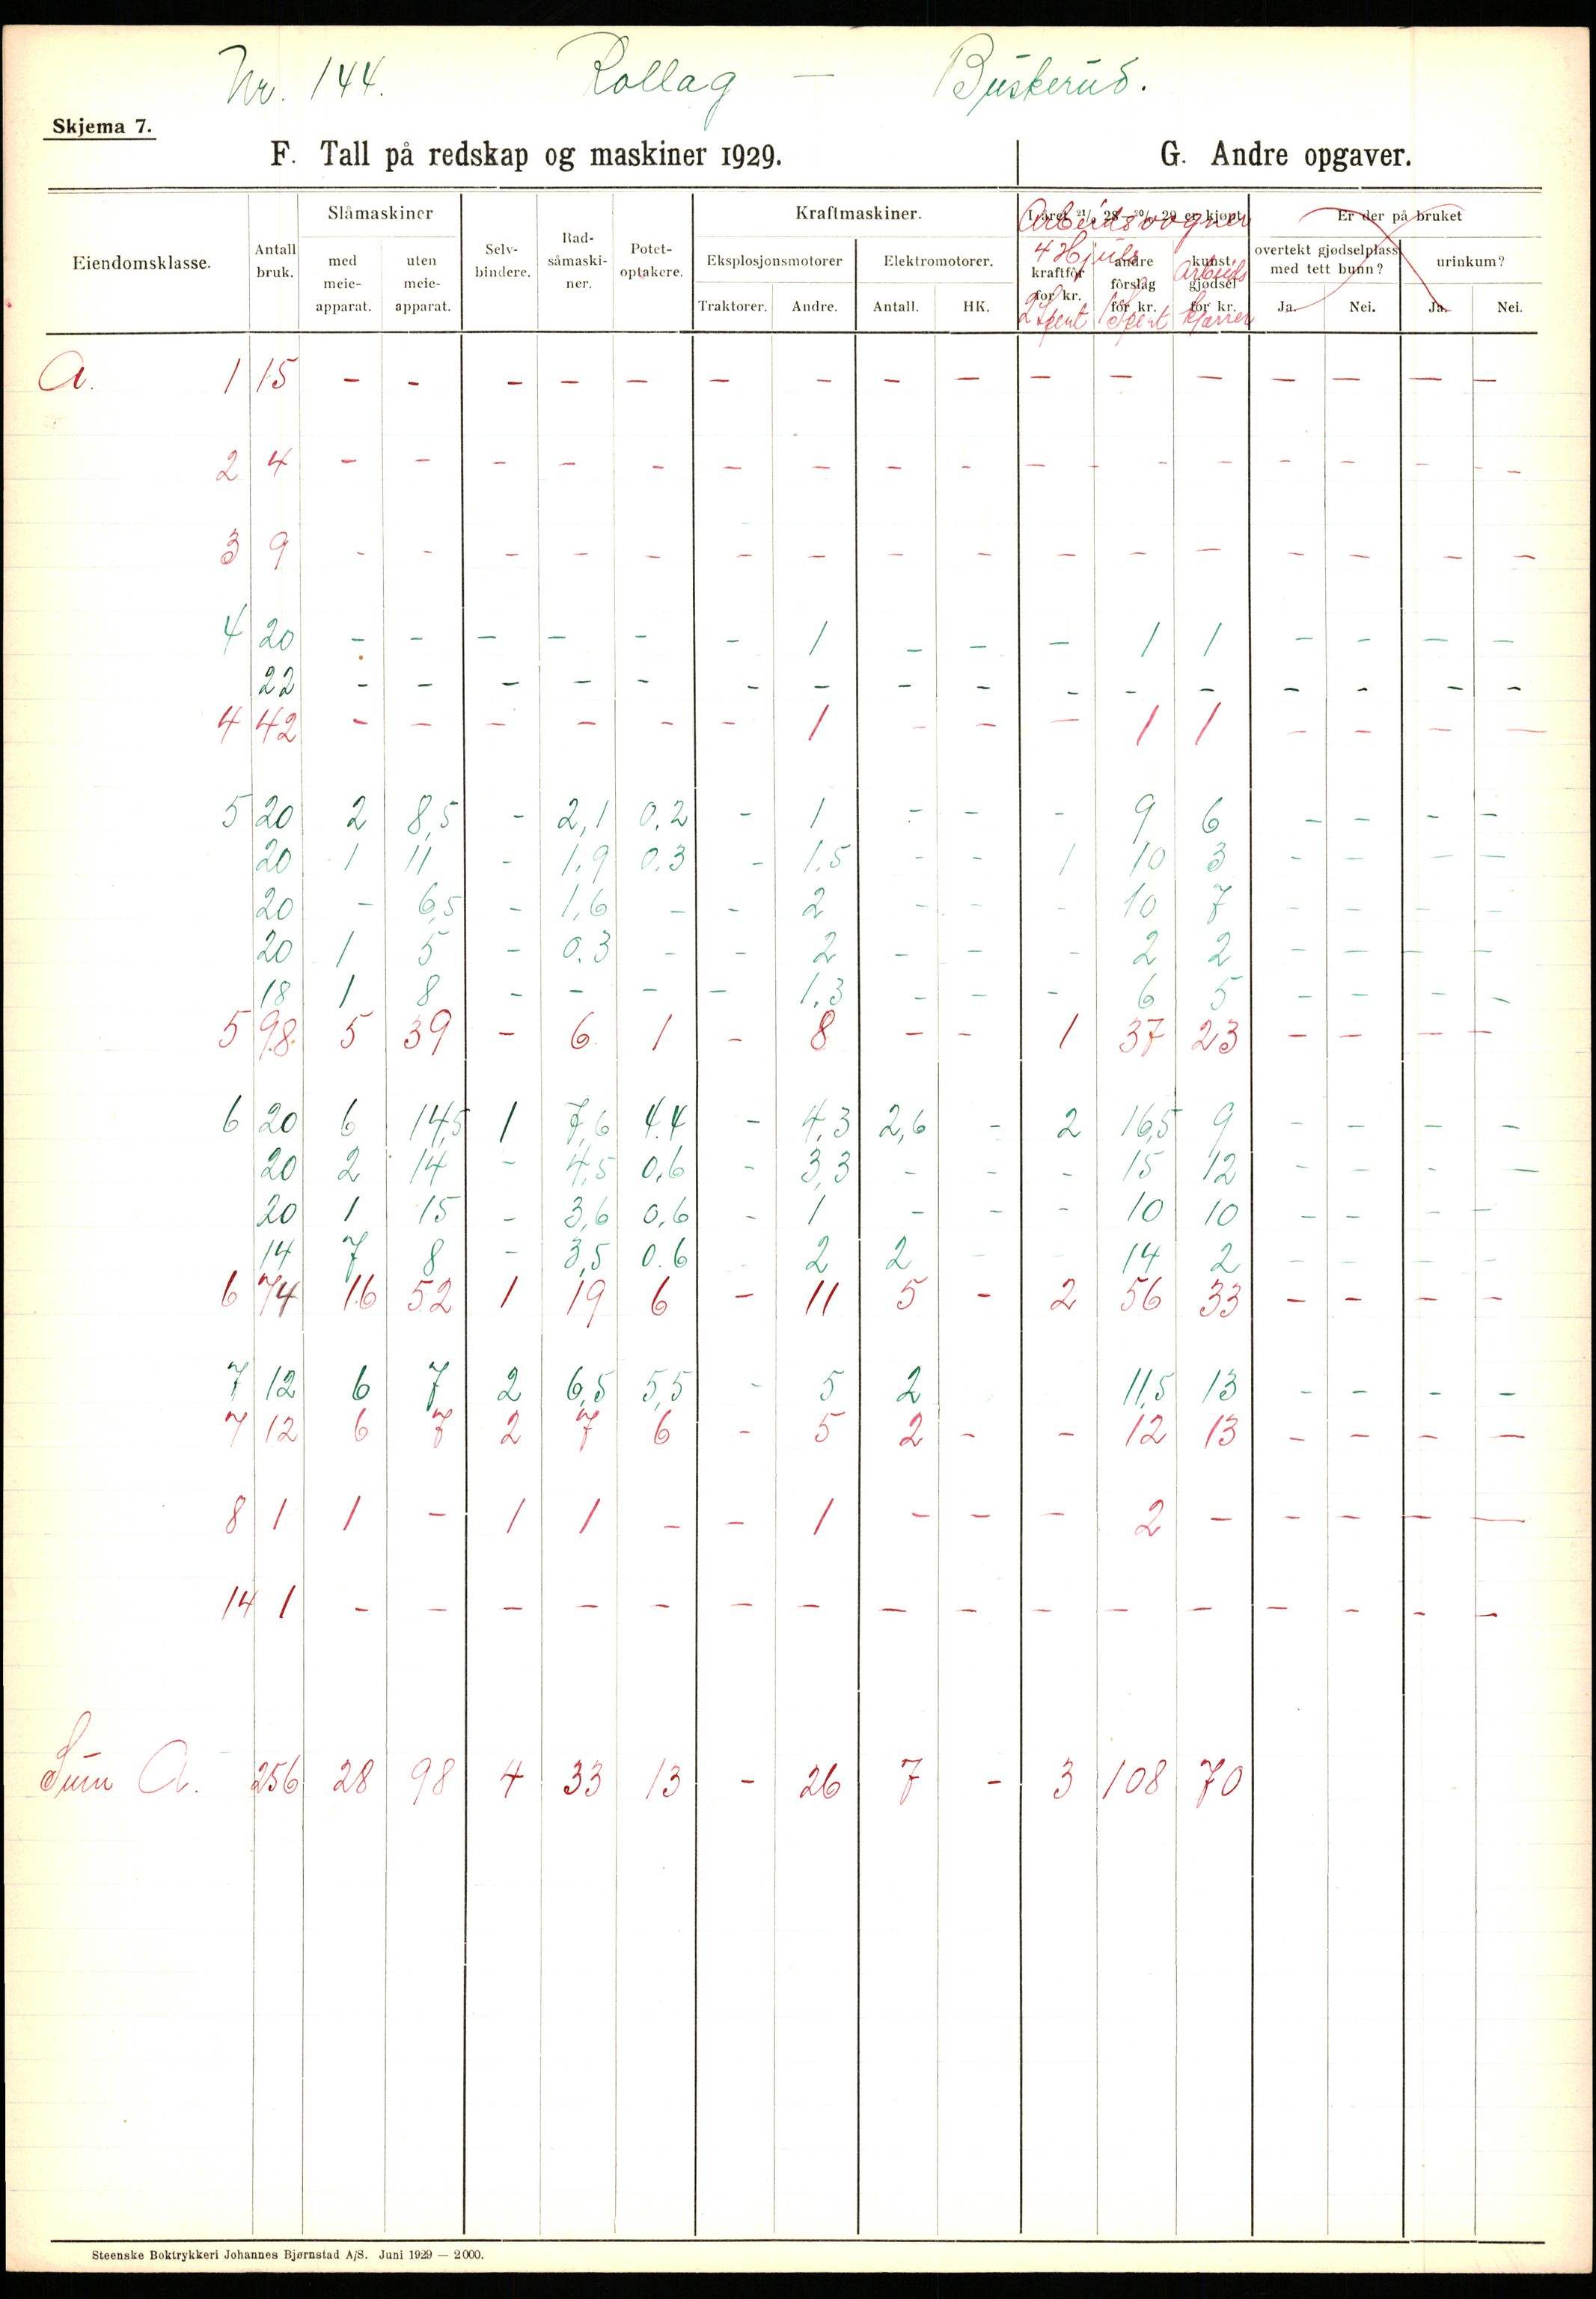 Nr. 144. Rollag — Buskerud.
Skjema 7.
F. Tall på redskap og maskiner 1929. G. Andre opgaver.
Eiendomsklasse. Antall bruk. Slåmaskiner med meie-apparat. uten meie-apparat. Selv-bindere. Rad-såmaski-ner. Potet-optakere. Kraftmaskiner. Eksplosjonsmotorer Traktorer. Andre. Elektromotorer. Antall. HK. I året 21/6 28–20/6 29 er kjøpt kraftfôr for kr. andre fôrslag for kr. kunst-gjødsel for kr. Er der på bruket overtekt gjødselplass med tett bunn? Ja. Nei. urinkum? Ja. Nei.
Arbeidsvogner
4 Hjuls Arbeids
2 Spent 1 Spent kjærrer
A. 1 15 - - - - - - - - - - - - - - - -
2 4 - - - - - - - - - - - - - - - -
3 9 - - - - - - - - - - - - - - - -
4 20 - - - - - - 1 - - - 1 1 - - - -
22 - - - - - - - - - - - - - - - -
4 42 - - - - - - 1 - - - 1 1 - - - -
5 20 2 8,5 - 2,1 0.2 - 1 - - - 9 6 - - - -
20 1 11 - 1,9 0.3 - 1.5 - - 1 10 3 - - - -
20 - 6,5 - 1,6 - - 2 - - - 10 7 - - - -
20 1 5 - 0.3 - - 2 - - - 2 2 - - - -
18 1 8 - - - - 1.3 - - - 6 5 - - - -
5 98 5 39 - 6 1 - 8 - - 1 37 23 - - - -
6 20 6 14,5 1 7,6 4.4 - 4,3 2,6 - 2 16,5 9 - - - -
20 2 14 - 4,5 0,6 - 3,3 - - - 15 12 - - - -
20 1 15 - 3,6 0,6 - 1 - - - 10 10 - - - -
14 7 8 - 3,5 0.6 - 2 2 - - 14 2 - - - -
6 74 16 52 1 19 6 - 11 5 - 2 56 33 - - - -
7 12 6 7 2 6,5 5,5 - 5 2 11,5 13 - - - -
7 12 6 7 2 7 6 - 5 2 - - 12 13 - - - -
8 1 1 - 1 1 - - 1 - - - 2 - - - - -
14 1 - - - - - - - - - - - - - - - -
Sum A. 256 28 98 4 33 13 - 26 7 - 3 108 70
Steenske Boktrykkeri Johannes Bjørnstad A/S. Juni 1929 — 2000.